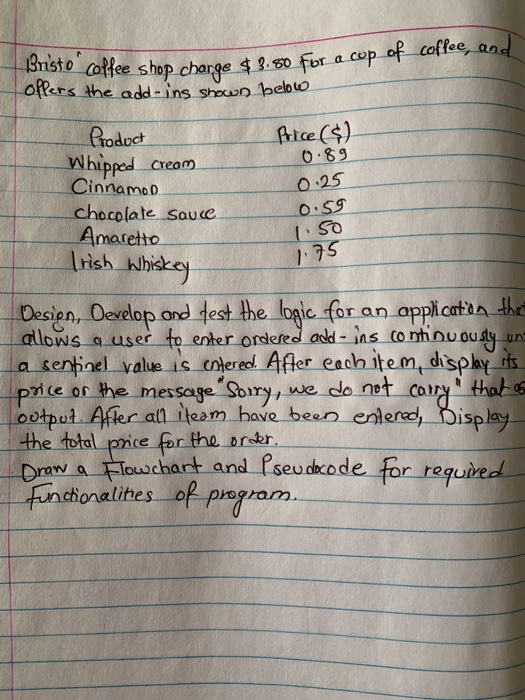 Bristo" coffee shop charge $ 3.80 For a cup of coffee, and
offers the add-ins shown below
Product Price ($)
Whipped cream 0.89
Cinnamon 0.25
chocolate sauce 0.59
Amaretto 1.50
Irish Whiskey 1.75
Design, Develop and test the logic for an application that
allows a user to enter ordered add-ins continuously un
a sentinel value is entered. After each item, display its
price or the message "Sorry, we do not carry" that as
output. After all iteam have been entered, Display
the total price for the order.
Draw a Flowchart and Pseudocode for required
functionalities of program.